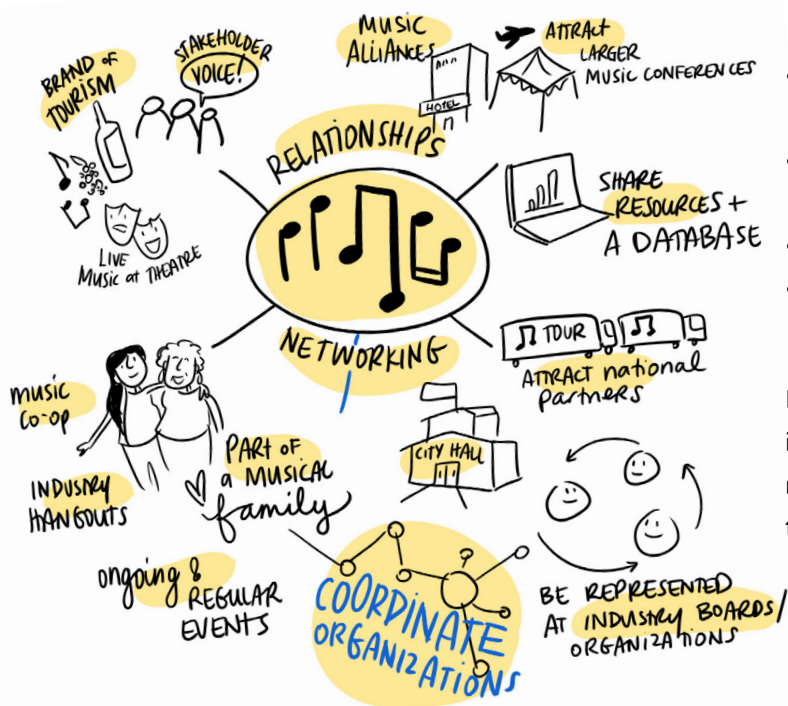 BRAND OF
TOURISM
STAKEHOLDER
VOICE!
LIVE
MUSIC at THEATRE
MUSIC
ALLIANCES
HOTEL
ATTRAct
LARGER
MUSIC CONFERENCES
RELATIONSHIPS
SHARE
RESOURCES +
A DATABASE
NETWORKING
TOUR
ATTRACT national
partners
music
co-op
INDUSTRY
HANGOUTS
PART OF
a MUSICAL
family
CITY HALL
ongoing &
REGULAR
EVENTS
COORDINATE
ORGANIZATIONS
BE REPRESENTED
AT INDUSTRY BOARDS/
ORGANIZATIONS